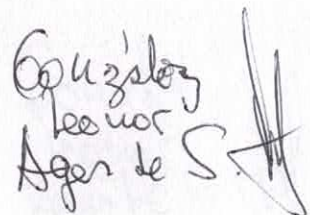 González
Leonor
Ager de S.